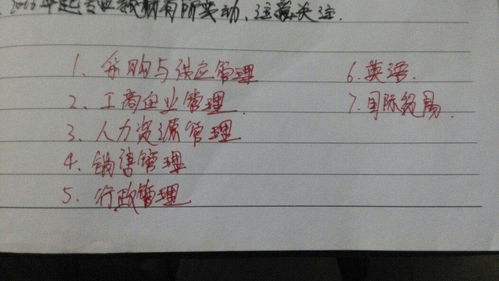 年起专业规则有所变动,注意关注.
1、采购与供应管理
2、工商企业管理
3、人力资源管理
4、销售管理
5、行政管理
6.英语
7.国际贸易